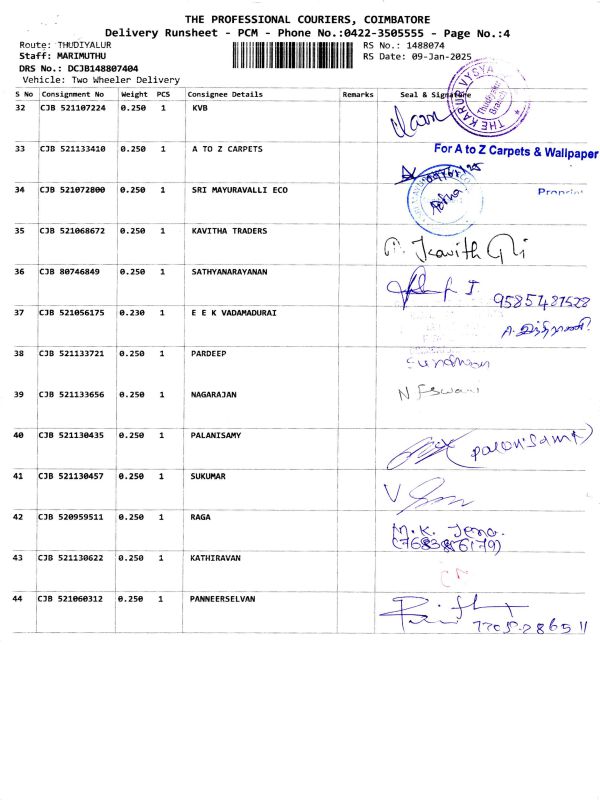 THE PROFESSIONAL COURIERS, COIMBATORE
Delivery Runsheet - PCM - Phone No.:0422-3505555 - Page No.:4
Route: THUDIYALUR RS No.: 1488074
Staff: MARIMUTHU RS Date: 09-Jan-2025
DRS No.: DCJB148807404
Vehicle: Two Wheeler Delivery
S No Consignment No Weight PCS Consignee Details Remarks Seal & Signature
32 CJB 521107224 0.250 1 KVB
THE KARUR VYSYA
Thudiyalur
Branch
33 CJB 521133410 0.250 1 A TO Z CARPETS For A to Z Carpets & Wallpaper
34 CJB 521072800 0.250 1 SRI MAYURAVALLI ECO
35 CJB 521068672 0.250 1 KAVITHA TRADERS
36 CJB 80746849 0.250 1 SATHYANARAYANAN
9585487528
37 CJB 521056175 0.230 1 E E K VADAMADURAI
38 CJB 521133721 0.250 1 PARDEEP
39 CJB 521133656 0.250 1 NAGARAJAN
40 CJB 521130435 0.250 1 PALANISAMY (Palanisamy)
41 CJB 521130457 0.250 1 SUKUMAR
42 CJB 520959511 0.250 1 RAGA M.K. Jena.
43 CJB 521130622 0.250 1 KATHIRAVAN
44 CJB 521060312 0.250 1 PANNEERSELVAN